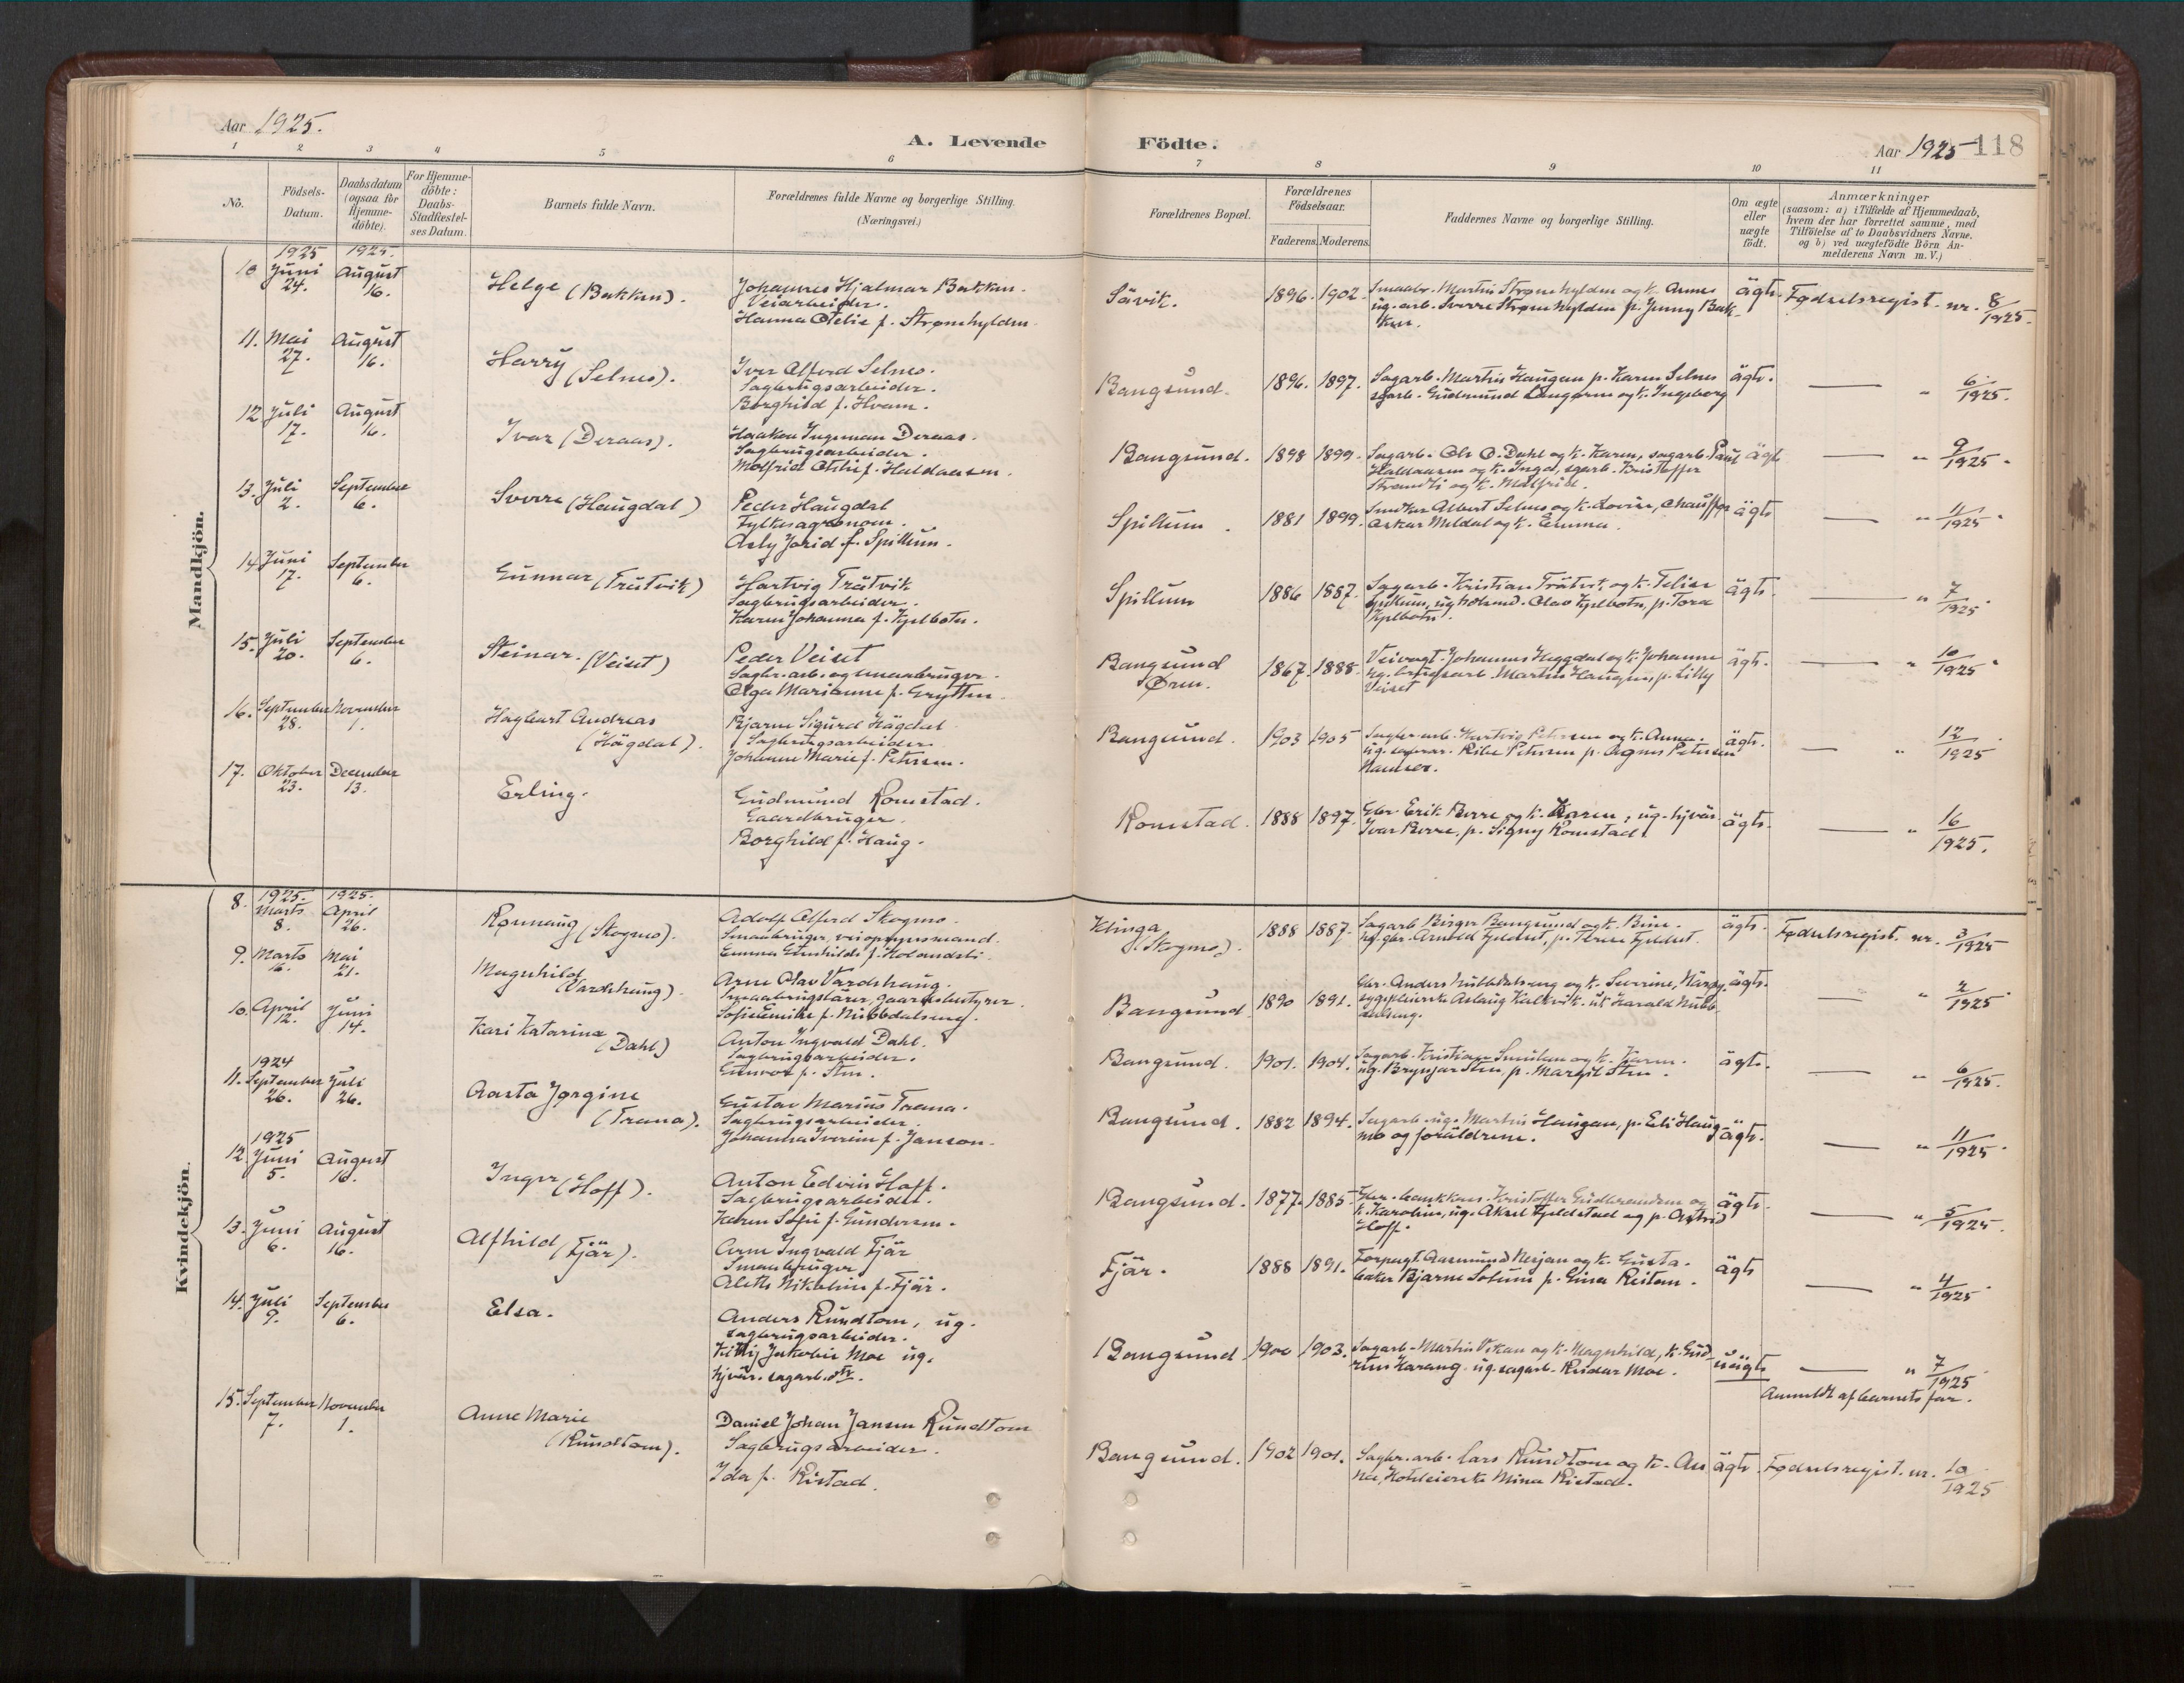 Aar 1925.
A. Levende Födte.
Aar 1925 118
1 2 3 4 5 6 7 8 9 10 11
No.
Födsels-Datum.
Daabsdatum (ogsaa for Hjemme-döbte).
For Hjemme-döbte: Daabs-Stadfæstel-ses Datum.
Barnets fulde Navn.
Forældrenes fulde Navne og borgerlige Stilling.
(Næringsvei.)
Forældrenes Bopæl.
Forældrenes Födselsaar.
Faderens. Moderens.
Faddernes Navne og borgerlige Stilling.
Om ægte eller uægte födt.
Anmærkninger
(saasom: a) i Tilfælde af Hjemmedaab,
hvem der har forrettet samme, med
Tilföielse af to Daabsvidners Navne,
og b) ved uægtefödte Börn An-
melderens Navn m. V.)
Mandkjön.
1925 1925.
10 Juni 24. August 16.
Helge (Bakken).
Johannes Hjalmar Bakken.
Veiarbeider.
Hanna Otelie f. Strømhylden.
Sävik.
1896. 1902.
Smaabr. Martin Strømhylden og k. Anna
ug. arb. Sverre Strømhylden p. Jenny Bak-
ken.
ägte
Fødselsregist. nr. 8/1925.
11. Mai 27. August 16.
Harry (Selnes).
Iver Alferd Selnes.
Sagbrugsarbeider.
Borghild f. Hvam.
Bangsund.
1896. 1897.
Sagarb. Martin Haugen p. Karen Selnes
sgarb. Gudmund Langørn og k. Ingeborg
ägte.
— " 6/1925.
12 Juli 17. August 16.
Ivar (Deraas).
Haakon Ingeman Deraas.
Sagbrugsarbeider.
Molfrid Otelie f. Haldaasen.
Bangsund.
1898 1899.
Sagarb. Ole O. Dahl og k. Karen, sagarb. Paul
Haldaasen og k. Inga, sgarb. Kristoffer
Strandli og k. Molfrid.
ägte
— " 9/1925.
13. Juli 2. September 6.
Sverre (Haugdal)
Peder Haugdal
Fylkesagronom.
Asly Jorid f. Spillum.
Spillum.
1881 1899.
Snedker Albert Selnes og k. Lovise, Chauffør
Oskar Meldal og k. Emma.
ägte
— " 11/1925.
14 Juni 17. September 6.
Gunnar (Trätvik)
Hartvig Trätvik
Sagbrugsarbeider.
Karen Johanna f. Kjelbotn.
Spillum
1886 1887.
Sagarb. Kristian Trätvik og k. Felise
Spillum, ug. Olav Kjelbotn, p. Tora
Kjelbotn.
ägte.
— " 7/1925.
15. Juli 20. September 6.
Steinar. (Veiset)
Peder Veiset
Sagbr. arb. og smaabruger.
Olga Marianne f. Grytten.
Bangsund Øren.
1867. 1888.
Veivogt. Johannes Heggdal og k. Johanna
Martin Haugen, p. Lilly
Veiset
ägte.
— " 10/1925.
16. September 28. November 1.
Hagbart Andreas
(Hägdal).
Bjarne Sigurd Hägdal
Sagbrugsarbeider.
Johanne Marie f. Petersen.
Bangsund.
1903 1905
Sagbr. arb. Hartvig Petersen og k. Anna.
ug. Petersen p. Agnes Petersen
Namsos.
ägte.
— " 12/1925
17. Oktober 23. December 13.
Erling.
Gudmund Romstad.
Gaardbruger.
Borghild f. Haug.
Romstad.
1888 1897.
Gbr. Erik Berre og k. Karen, ug. hjvär.
Ivar Berre, p. Signy Romstad.
ägte.
— " 16/1925.
Kvindekjön.
1925. 1925.
8. Marts 8. April 26.
Rønnaug (Skogmo).
Adolf Alferd Skogmo.
Smaabruger, veiopsynsmand.
Emma f. Kolandsli.
Klinga
(Skogmo).
1888 1887.
Sagarb. Birger Bangsund og k. Bine.
ug. gbr. Arnold Fjeldset, p. Fjeldset.
ägte.
Fødselsregist. nr. 3/1925
9. Marts 16. Mai 21.
Magnhild
(Vardehaug).
Arne Olav Vardehaug.
Smaabrugslärer, gaardsbestyrer.
Sofie Emilie f. Nubbdalseng.
Bangsund
1890 1891.
Gbr. Anders Nubbdalseng og k. Severine, Harøy,
sygepleierske Aslaug Kalsvik. uk Harald Nubb-
dalseng.
ägte.
— " 2/1925
10. April 12. Juni 14.
Kari Katarina
(Dahl)
Anton Ingvald Dahl.
Sagbrugsarbeider.
Gunvor f. Sten.
Bangsund.
1901. 1904.
Sagarb. Kristian og k. Karen.
ug. Brynjar Sten, p. Margit Sten.
ägte.
— " 6/1925.
1924
11. September 26. Juli 26.
Aasta Jørgine
(Trana).
Gustav Marius Trana.
Sagbrugsarbeider.
Johanna Iverine f. Janson.
Bangsund.
1882 1894.
Sagarb. ug. Martin Haugan, p. Eli Haug-
mo og foräldrene.
ägte.
— " 11/1925.
1925
12. Juni 5. August 16.
Inger (Hoff).
Anton Edvin Hoff.
Sagbrugsarbeider.
Karen Sofie f. Gundersen.
Bangsund.
1877. 1885
Gbr. bankkas. Kristoffer Gudbrandsen og
k. Karoline, ug. Aksel Fjeldstad og p. Astrid
Hoff.
ägte.
— " 5/1925.
13. Juni 6. August 16.
Alfhild (Fjär).
Arne Ingvald Fjär
Smaabruger
Aleth Nikoline f. Fjär.
Fjär.
1888 1891.
Forpagt. Aasmund Nerjan og k. Gusta.
baker Bjarne Solum p. Gina Reitan.
ägte
— " 4/1925.
14. Juli 9. September 6.
Elsa.
Anders Rundtom, ug.
sagbrugsarbeider.
Kitty Jakobie Moe ug.
hjvär. sagarb. dtr.
Bangsund
1900 1903.
Sagarb. Martin Vikan og k. Magnhild, k. Gud-
run Harang. ug. sagarb. Reidar Moe.
uägte
— " 7/1925
Anmeldt af barnets far.
15. September 7. November 1.
Anne Marie
(Rundtom).
Daniel Johan Jansen Rundtom
Sagbrugsarbeider.
Ida f. Ristad.
Bangsund.
1902 1901.
Sagbr. arb. Lars Rundtom og k. An-
na, Hoteleierske Mina Ristad.
ägte.
Fødselsregist. nr. 10/1925